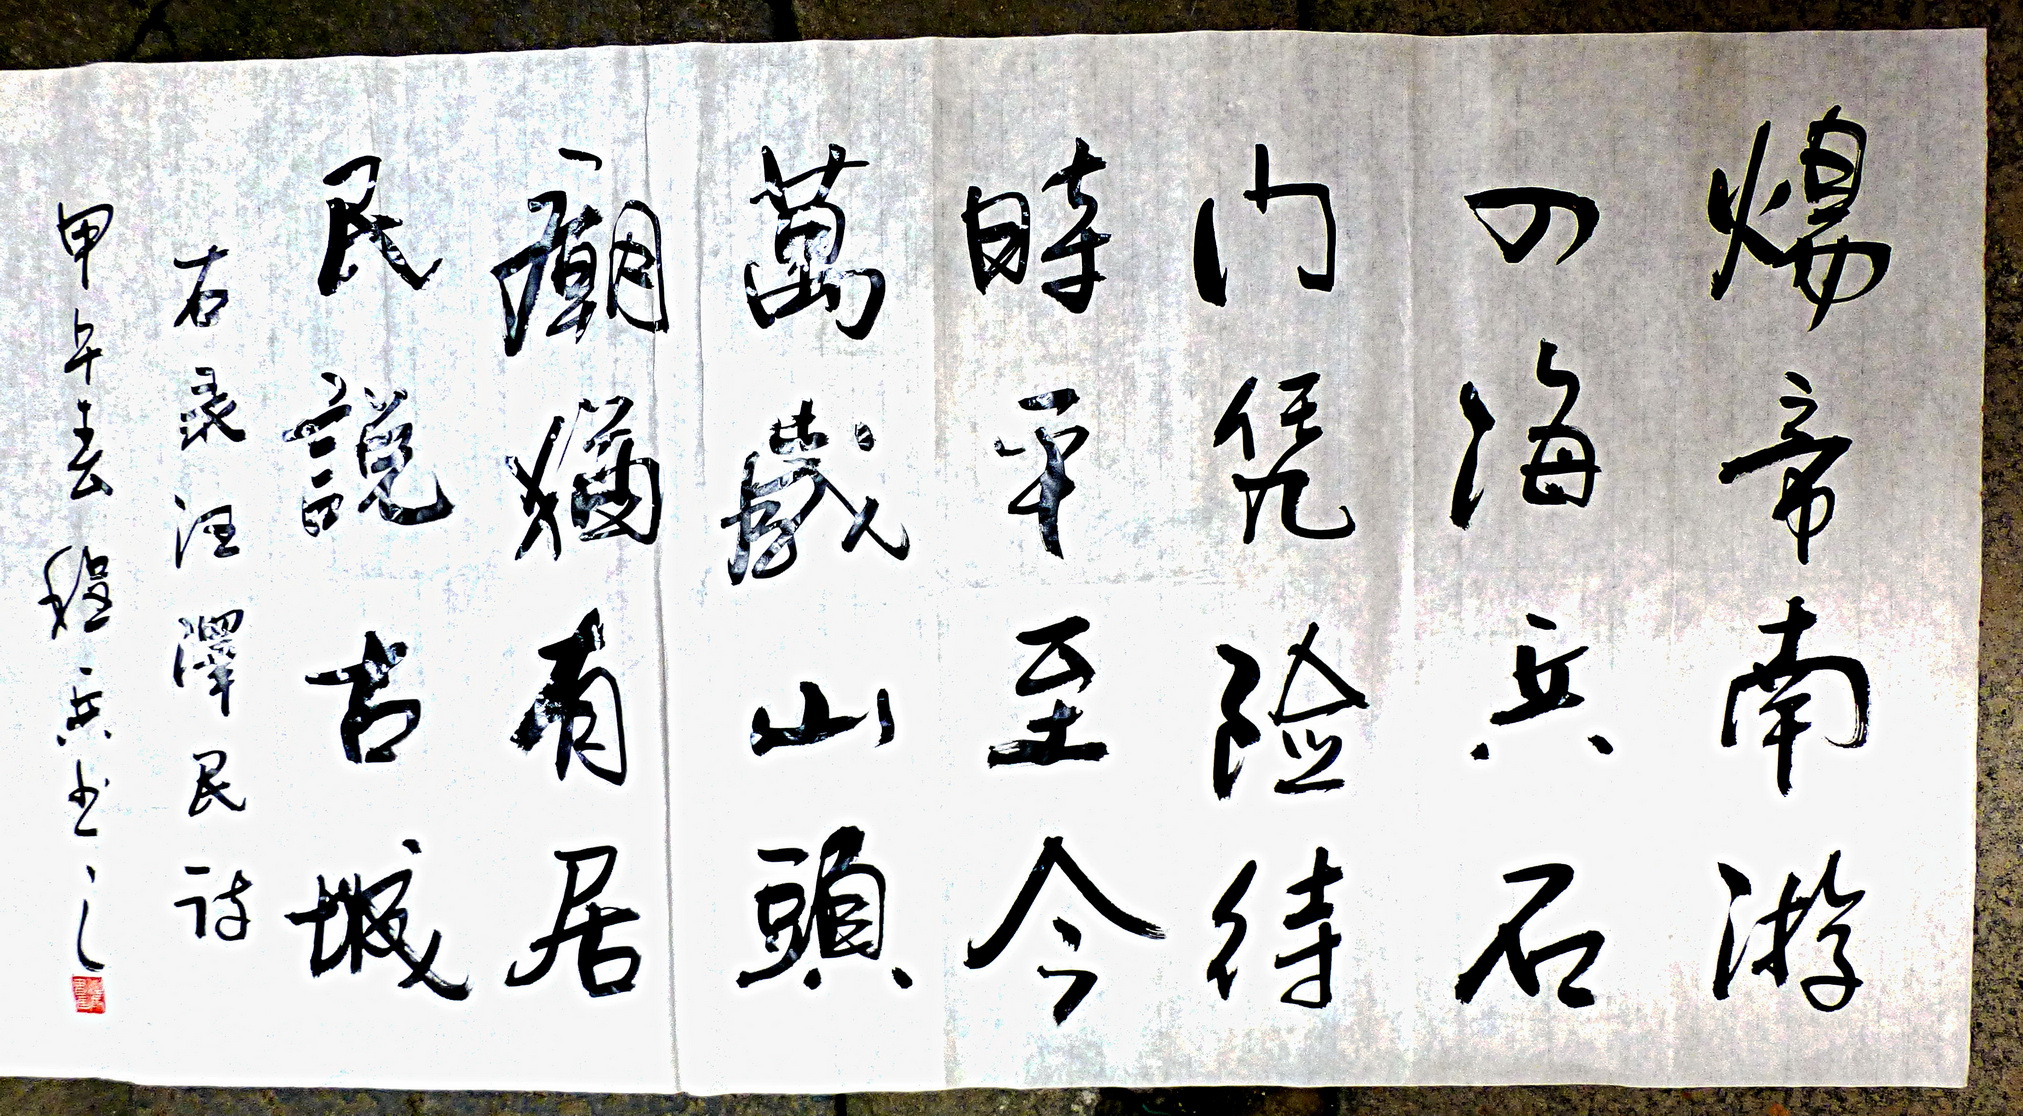 煬帝南游
四海兵石
门凭险待
時平至今
萬歲山頭
廟猶有居
民說古城
右录汪澤民詩
甲午春程兵书之